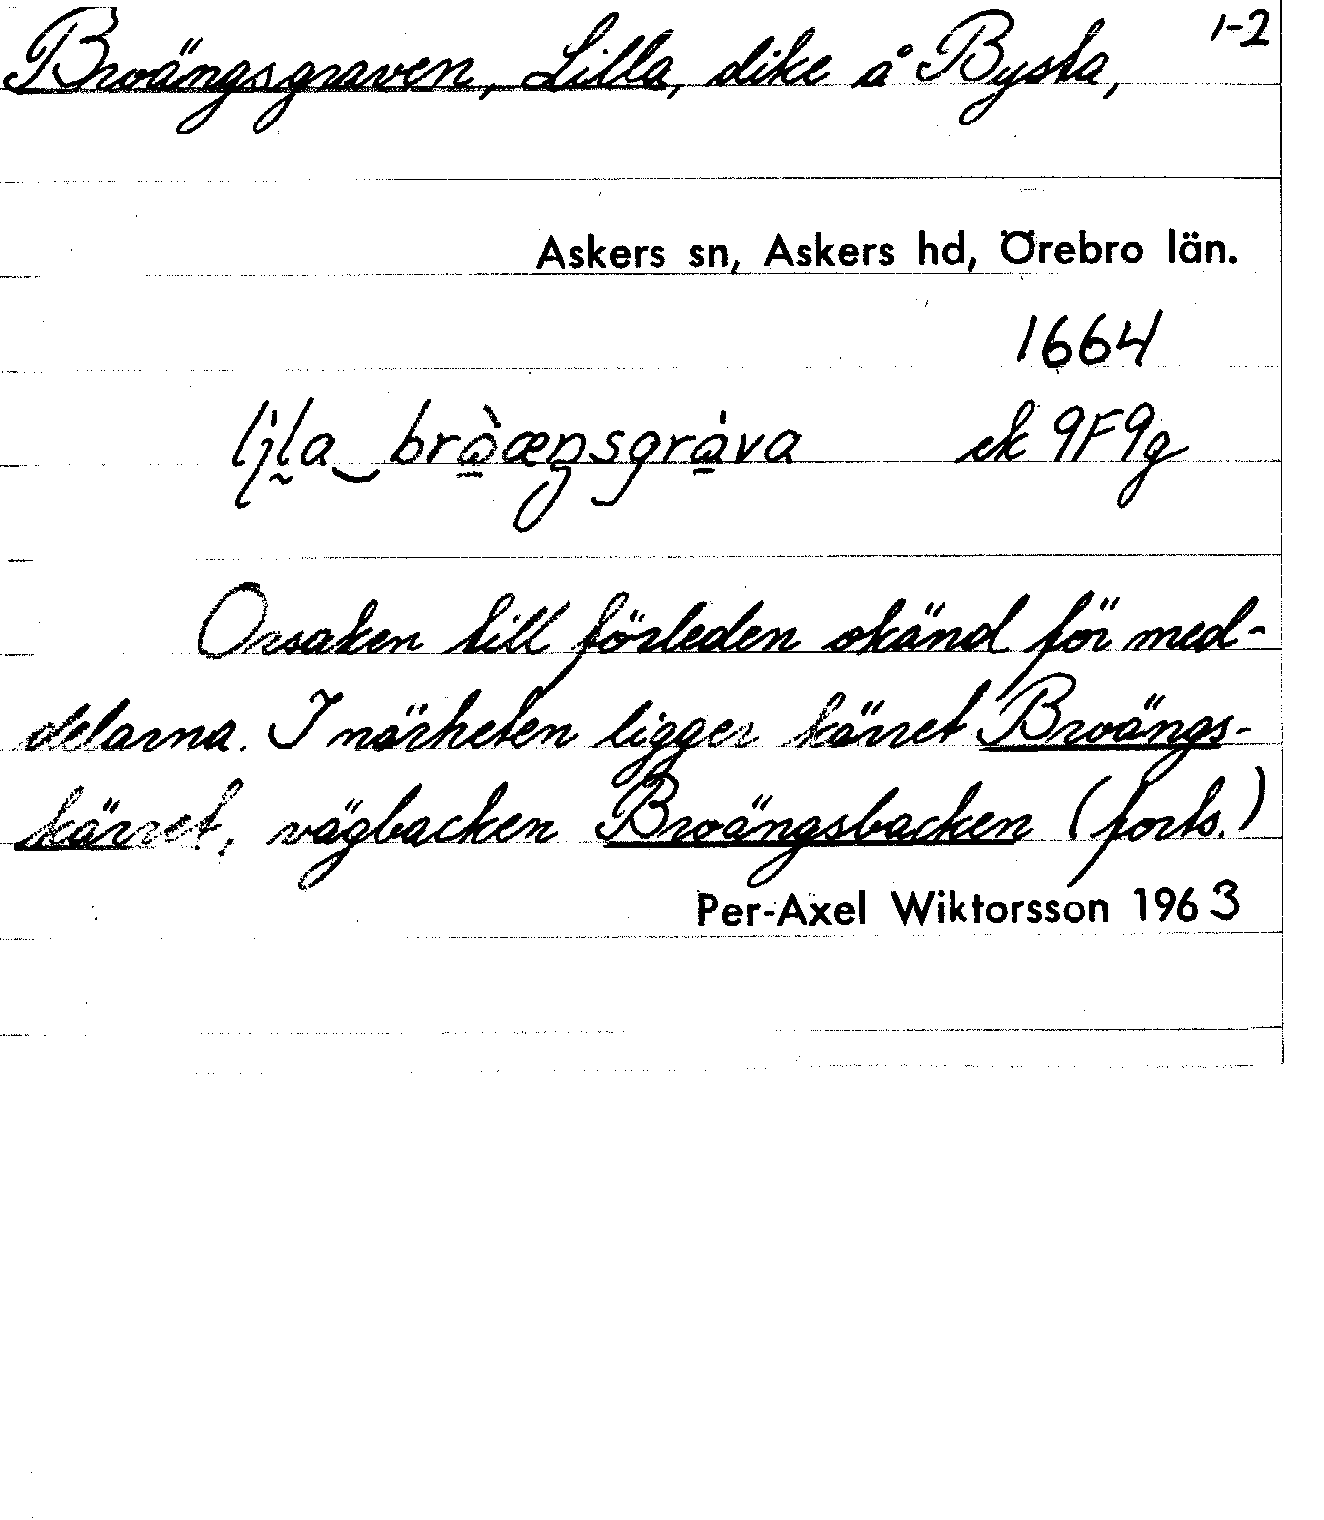 1-2
Broängsgraven, Lilla, dike å Bysta,
Askers sn, Askers hd, Örebro län.
1664
lịla‿brò̱æŋsgrá̱va ek 9F9g
Orsaken till förleden okänd för med-
delarna. I närheten ligger kärret Broängs-
kärret, vägbacken Broängsbacken (forts.)
Per-Axel Wiktorsson 1963